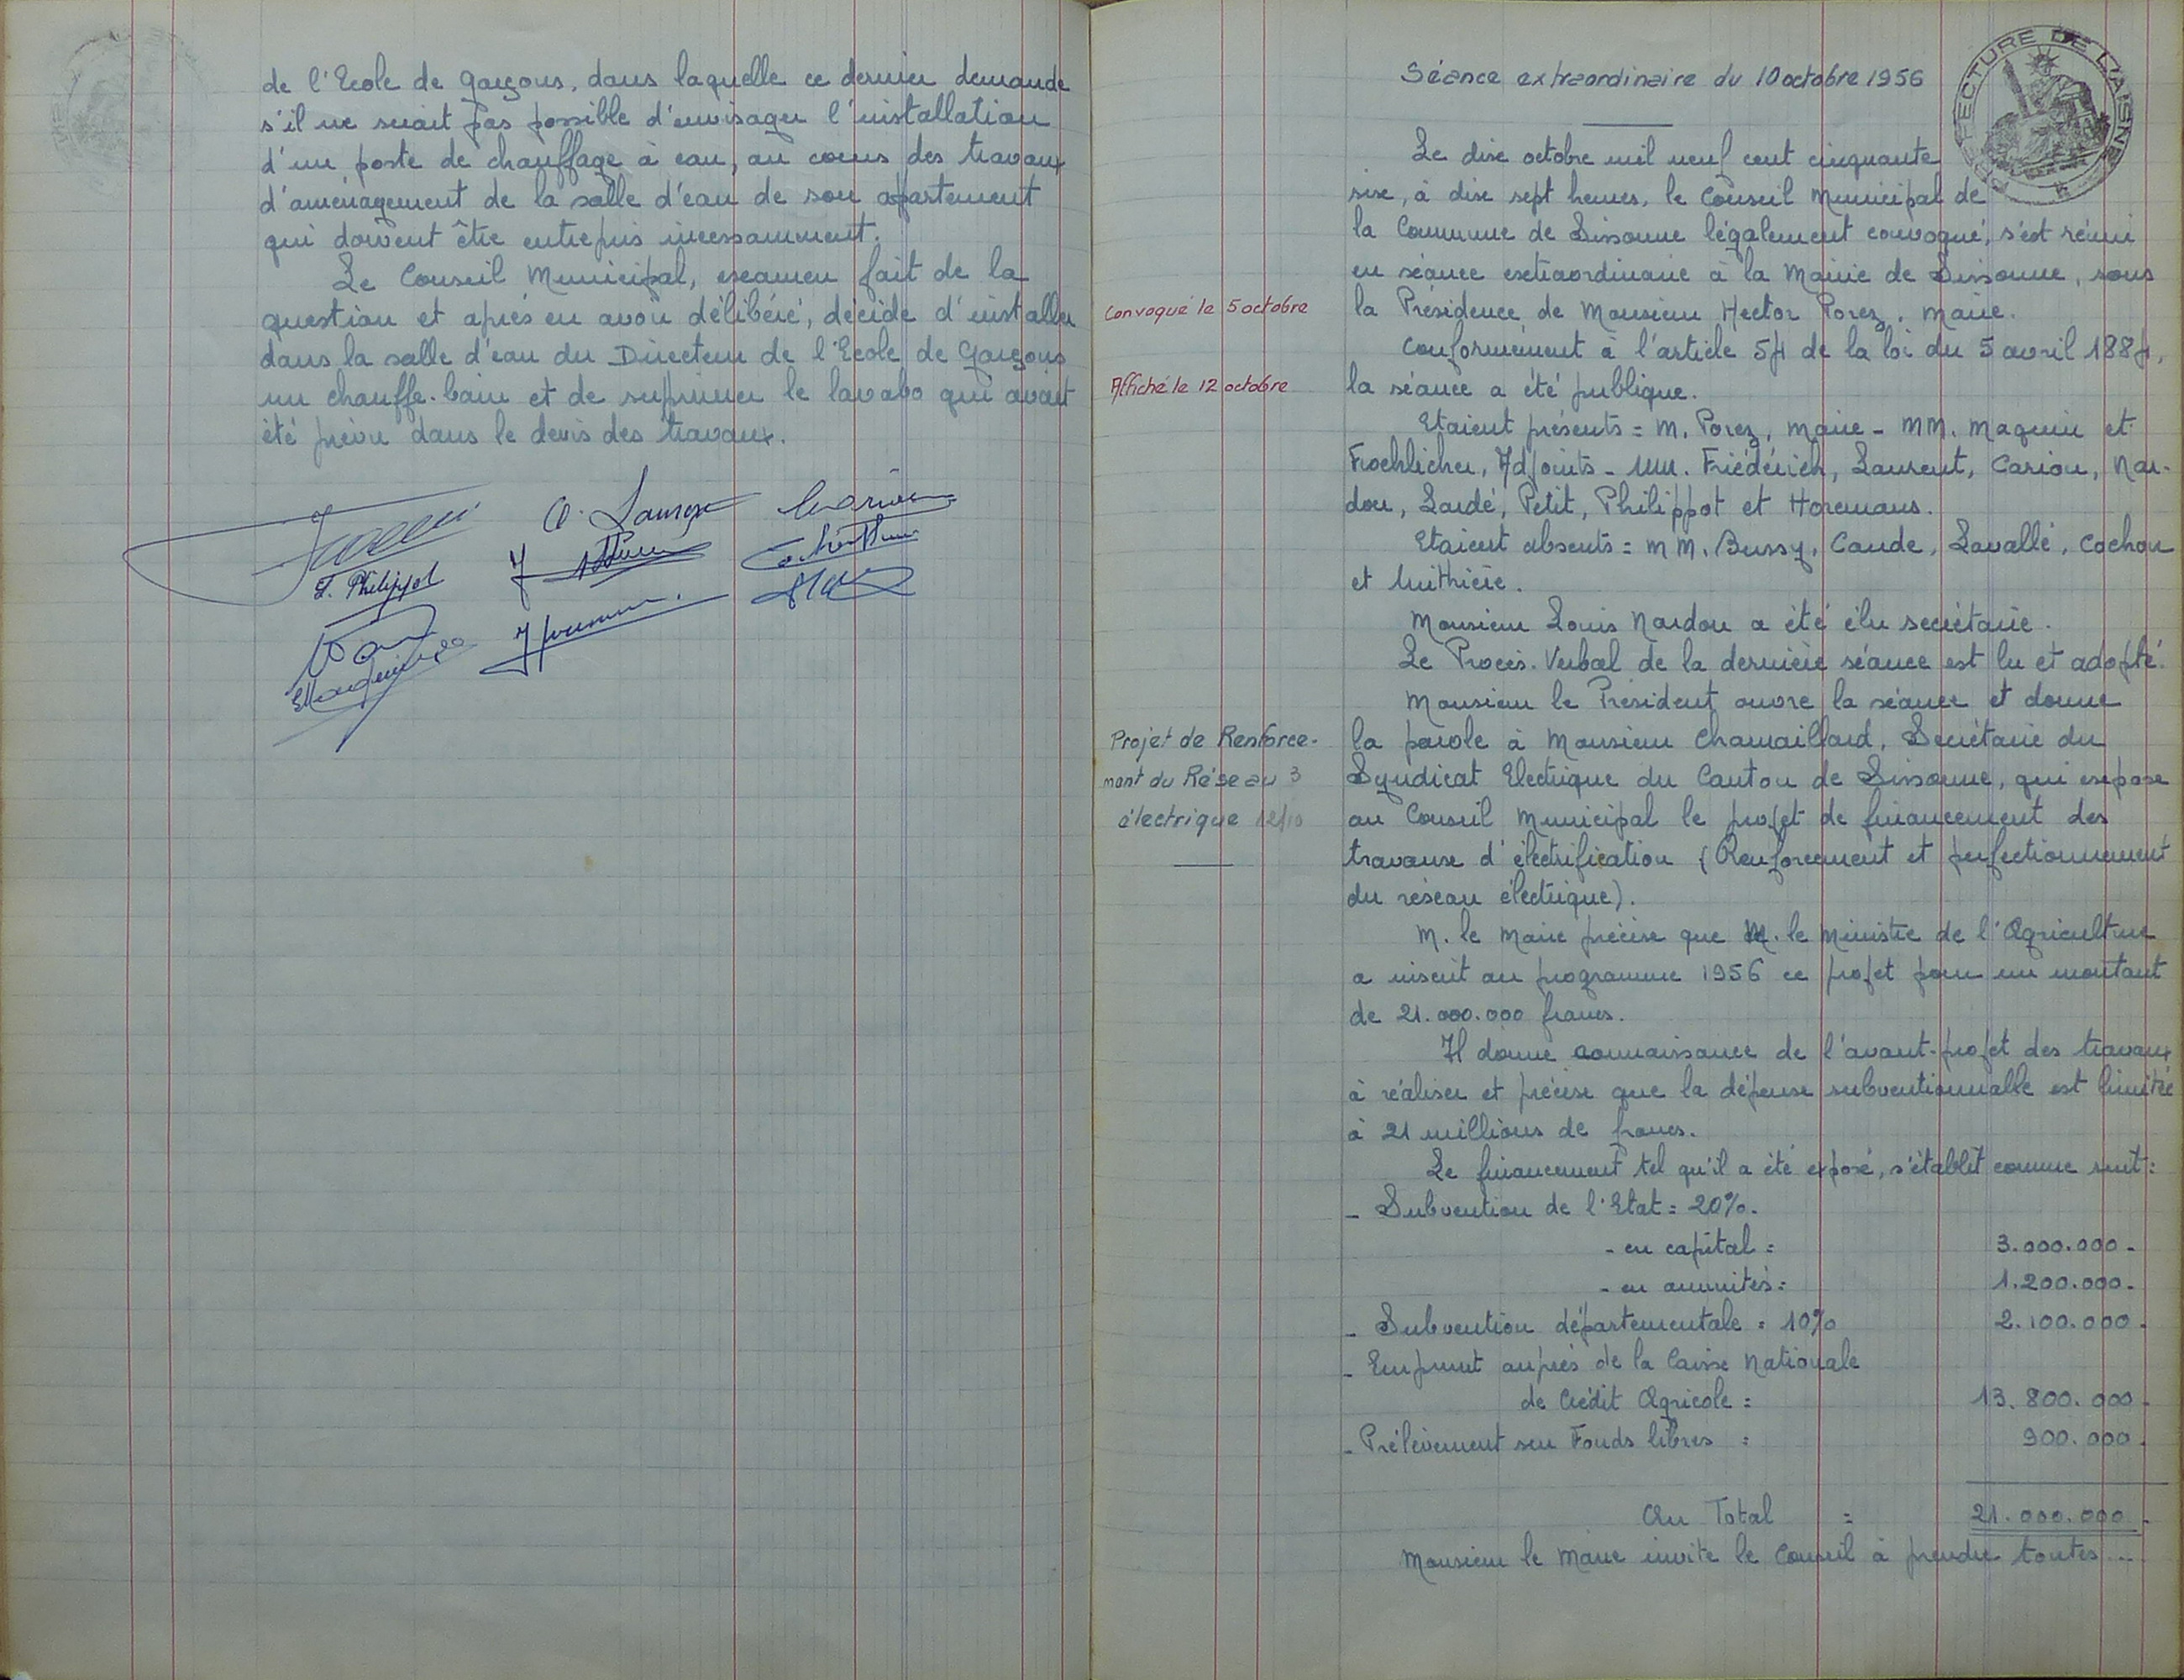 de l'Ecole de Garçons, dans laquelle ce dernier demande
s'il ne serait pas possible d'envisager l'installation
d'un poste de chauffage à eau, au cours des travaux
d'aménagement de la salle d'eau de son apartement
qui doivent être entrepris incessamment.
Le Conseil Municipal, examen fait de la
question et après en avoir délibéré, décide d'installer
dans la salle d'eau du Directeur de l'Ecole de Garçons
un chauffe-bain et de suprimer le lavabo qui avait
été prévu dans le devis des travaux.
F. Philippot
PREFECTURE DE L'AISNE
Séance extraordinaire du 10 octobre 1956
Le dix octobre mil neuf cent cinquante
six, à dix sept heures, le Conseil Municipal de
la Commune de Sissonne légalement convoqué, s'est réuni
en séance extraordinaire à la Mairie de Sissonne, sous
Convoqué le 5 octobre
la Présidence de Monsieur Hector Porez, Maire.
Conformément à l'article 54 de la loi du 5 avril 1884,
Affiché le 12 octobre
la séance a été publique.
Etaient présents = M. Porez, Maire - MM. Maquin et
Froehlicher, Adjoints - MM. Friédérich, Laurent, Cariou, Nar-
dou, Lardé, Petit, Philippot et Horemans.
Etaient absents = MM. Bussy, Caude, Lavallé, Cochon
et Mithière.
Monsieur Louis Nardou a été élu secrétaire.
Le Procès-Verbal de la dernière séance est lu et adopté.
Monsieur le Président ouvre la séance et donne
Projet de Renforce-
ment du Réseau 3
électrique 12/10
la parole à Monsieur Chamaillard, Secrétaire du
Syndicat Electrique du Canton de Sissonne, qui expose
au Conseil Municipal le projet de financement des
travaux d'électrification (Renforcement et perfectionnement
du réseau électrique).
M. le Maire précise que M. le Ministre de l'Agriculture
a inscrit au programme 1956 ce projet pour un montant
de 21.000.000 francs.
Il donne connaissance de l'avant-projet des travaux
à réaliser et précise que la dépense subventionnable est limitée
à 21 millions de francs.
Le financement tel qu'il a été exposé, s'établit comme suit :
- Subvention de l'Etat = 20%.
- en capital = 3.000.000 -
- en annuités = 1.200.000 -
- Subvention départementale = 10% 2.100.000 -
- Emprunt auprès de la Caisse Nationale
de Crédit Agricole = 13.800.000 -
- Prélèvement sur Fonds libres = 900.000 -
Au Total = 21.000.000 -
Monsieur le Maire invite le Conseil à prendre toutes ...